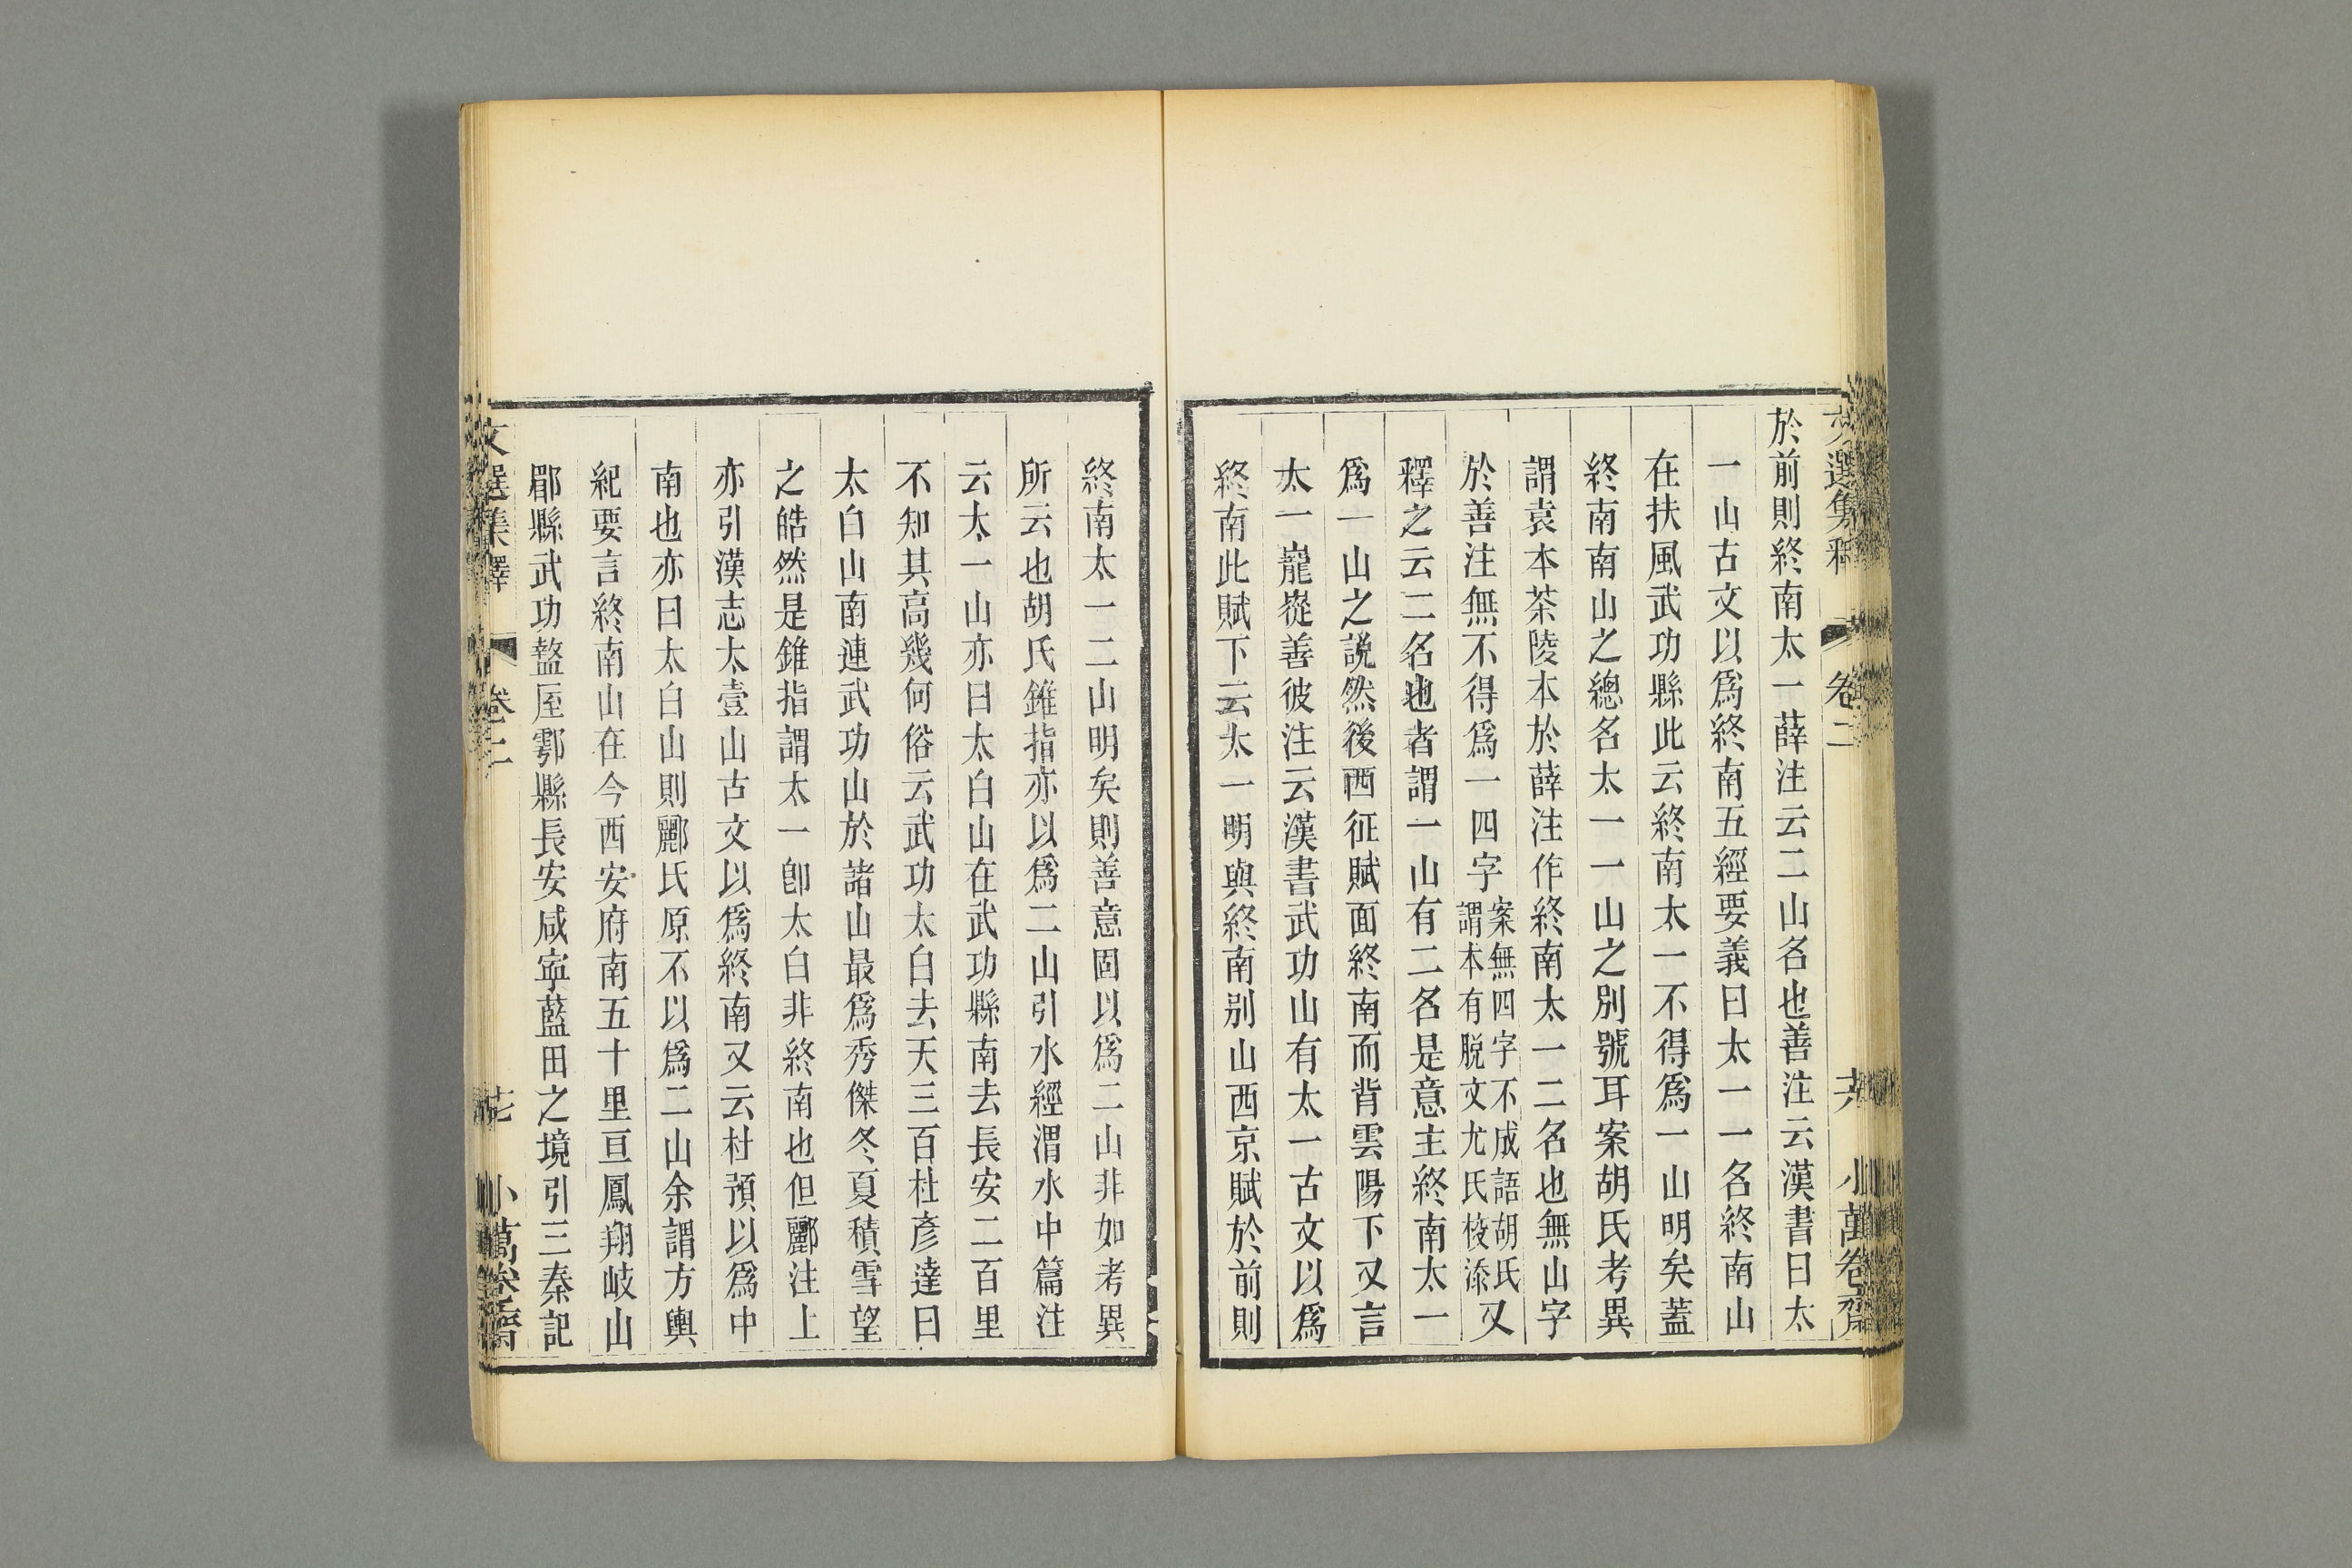 文選集釋 卷二 小萬卷齋
於前則終南太一薛注云二山名也善注云漢書曰太
一山古文以爲終南五經要義曰太一一名終南山
在扶風武功縣此云終南太一不得爲一山明矣蓋
終南南山之總名太一一山之別號耳案胡氏考異
謂袁本茶陵本於薛注作終南太一二名也無山字
於善注無不得爲一四字案無四字不成語胡氏謂本有脫文尤氏校添又
釋之云二名也者謂一山有二名是意主終南太一
爲一山之說然後西征賦面終南而背雲陽下又言
太一巃嵸善彼注云漢書武功山有太一古文以爲
終南此賦下云太一明與終南别山西京賦於前則
終南太一二山明矣則善意固以爲二山非如考異
所云也胡氏錐指亦以爲二山引水經渭水中篇注
云太一山亦曰太白山在武功縣南去長安二百里
不知其高幾何俗云武功太白去天三百杜彥達曰
太白山南連武功山於諸山最爲秀傑冬夏積雪望
之皓然是錐指謂太一卽太白非終南也但酈注上
亦引漢志太壹山古文以爲終南又云杜預以爲中
南也亦曰太白山則酈氏原不以爲二山余謂方輿
紀要言終南山在今西安府南五十里亘鳳翔岐山
郿縣武功盩厔鄠縣長安咸寧藍田之境引三秦記
文選集釋 卷二 小萬卷齋